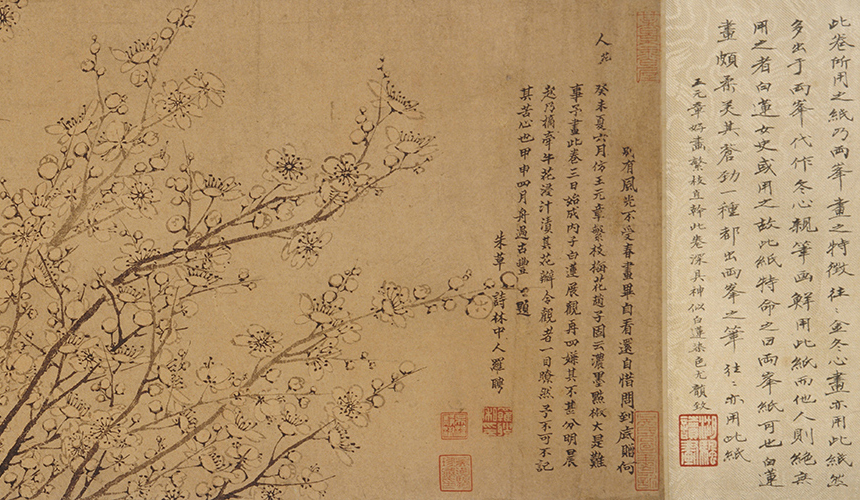 此卷所用之紙乃兩峯畫之特徵往〻金冬心畫亦用此紙然
多出于兩峯代作冬心親筆函鮮用此紙而他人則絕無
用之者白蓮女史或用之故此紙特命之曰兩峯紙可也白蓮
畫頗柔美其蒼勁一種都出兩峯之筆往〻亦用此紙
王元章好畫繁枝直幹此卷深具神似白蓮染色尤韻致
別有風光不受春畫畢自看還自惜問到底贈何
人
癸未夏六月仿王元章繁枝梅花趙子固云濃墨點椒大是難
事予畫此卷三日始成內子白蓮展觀再四嫌其不甚分明晨
起乃摘牽牛花浸汁漬其花瓣令觀者一目瞭然予不可不記
其苦心也甲申四月舟過古豐題
朱草詩林中人羅聘